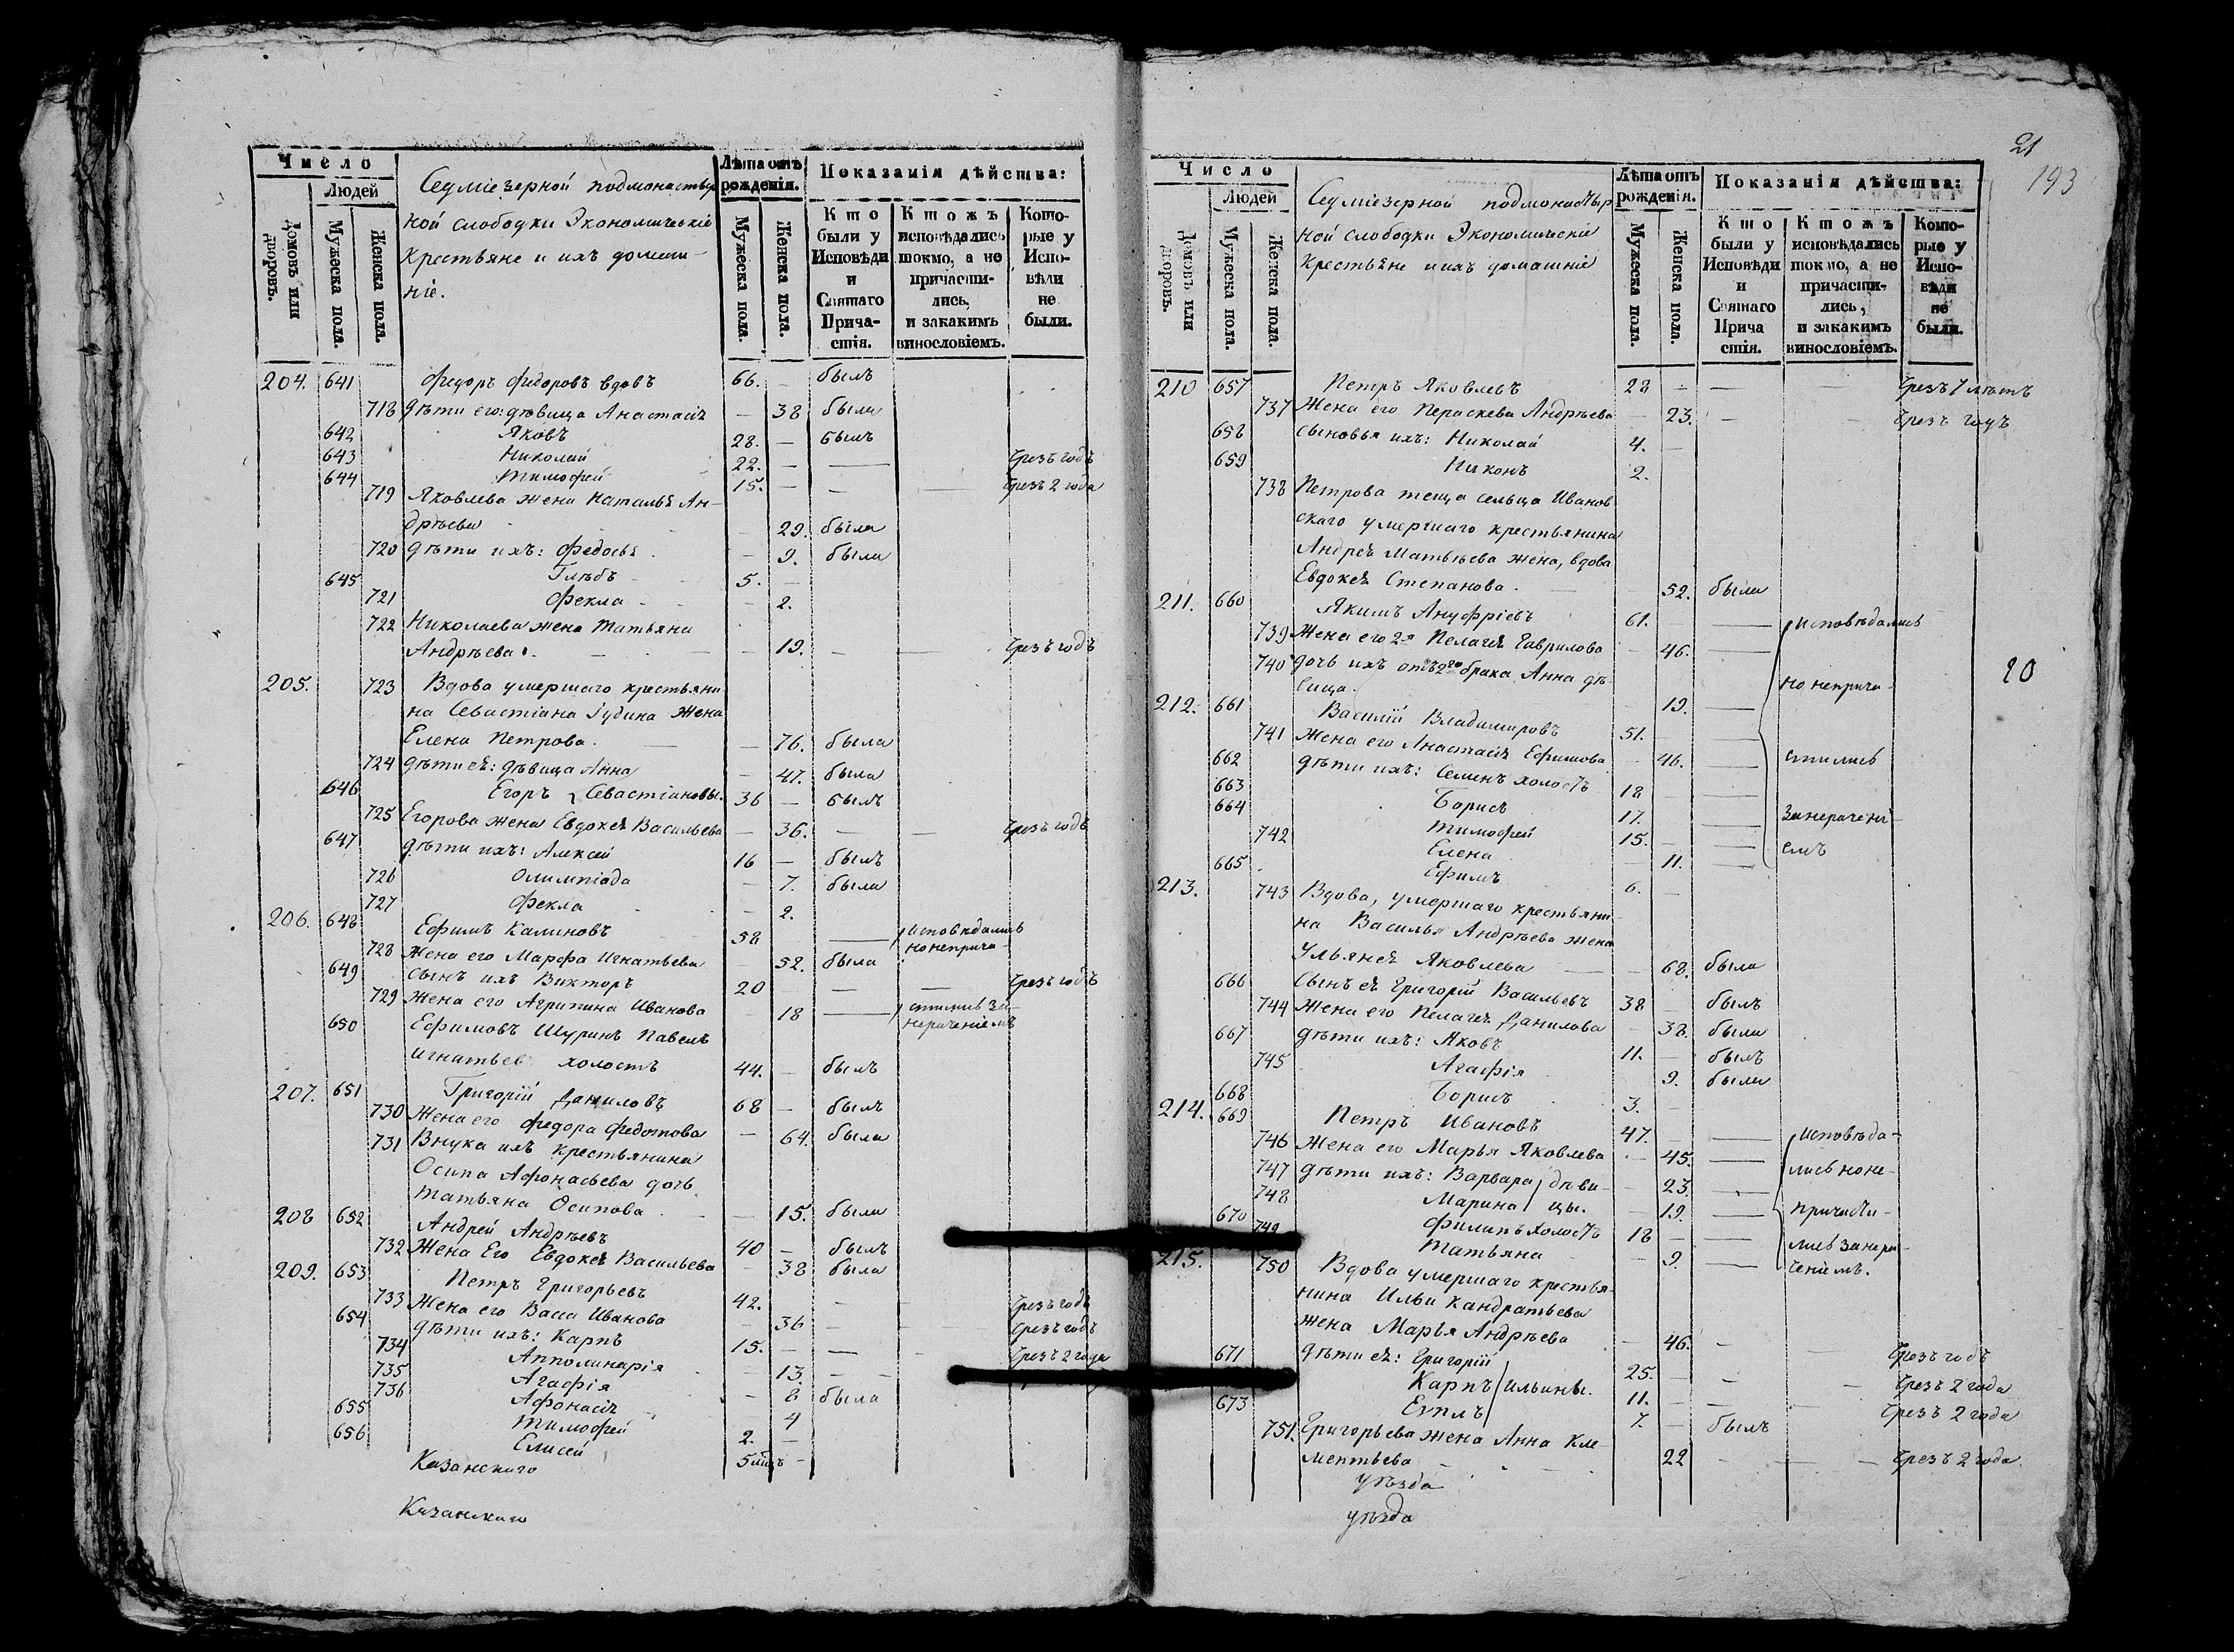 Число
Людей
Домовъ или дворовъ.
Мужеска пола.
Женска пола.
Седміезерной подмонастыр
ной слободки Экономическіе
Крестьяне и ихъ домаш-
ніе.
Лѣта отъ рожденія.
Мужеска пола.
Женска пола.
Показанія дѣйства:
Кто были у Исповѣди и Святаго Прича-стія.
Ктожъ исповѣдались токмо, а не причасти-лись, и закакимъ винословіемъ.
Кото-рые у Испо-вѣди не были.
204. 641 Федоръ Федоровъ вдовъ 66. — былъ
718 дѣти его: дѣвица Анастасія — 38 была
642 Яковъ 28. — былъ
643 Николай 22. — — Чрезъ годъ
644 Тимофей 15. — — — Чрезъ 2 года
719 Яковлева жена Наталья Ан-
дрѣева — 29. была
720 дѣти ихъ: Федосья — 9. была
645 Глѣбъ 5. —
721 Фекла — 2.
722 Николаева жена Татьяна
Андрѣева — 19. — — Чрезъ годъ
205. 723 Вдова умершаго крестьяни
на Севастіана Гудина жена
Елена Петрова. — 76. была
724 дѣти ея: дѣвица Анна — 47. была
646 Егоръ Севастіановы. 36 — былъ
725 Егорова жена Евдокея Васильева — 36. — — Чрезъ годъ
647 дѣти ихъ: Алексей 16 — былъ
726 Олимпіада — 7. была
727 Фекла — 2.
206. 648 Ефимъ Калиновъ 58 — исповѣдались
но неприча-
728 Жена его Марфа Игнатьева — 52. была
649 сынъ ихъ Викторъ 20 — — Чрезъ годъ
729 Жена его Агрипина Иванова — 18 — стились за
нераченіемъ
650 Ефимовъ Шуринъ Павелъ
Игнатьев холостъ 44. — былъ
207. 651 Григорій Даниловъ 68 — былъ
730 Жена его Федора Федотова — 64. была
731 Внука ихъ крестьянина
Осипа Афонасьева дочь
Татьяна Осипова — 15. была
208 652 Андрей Андрѣевъ 40 — былъ
732 Жена Его Евдокея Васильева — 38 была
209. 653 Петръ Григорьевъ 42. — Чрезъ годъ
733 Жена его Васса Иванова — 36 — — Чрезъ годъ
654 дѣти ихъ: Карпъ 15. — — — Чрезъ 2 года
734 Апполинарія — 13. — —
735 Агафія — 8 была
736 Афонасія — 4
655 Тимофей 2. —
656 Елисей 5 мѣцъ —
Казанскаго
Казанскаго
21
193
Число
Людей
Домовъ или дворовъ.
Мужеска пола.
Женска пола.
Седміезерной подмонастыр
ной слободки Экономическіе
Крестьяне и ихъ домашніе
Лѣта отъ рожденія.
Мужеска пола.
Женска пола.
Показанія дѣйства:
Кто были у Исповѣди и Святаго Прича стія.
Ктожъ исповѣдались токмо, а не причасти-лись, и закакимъ винословіемъ.
Кото-рые у Испо-вѣди не были.
210 657 Петръ Яковлевъ 28 — — — Чрезъ 7 лѣтъ
737 Жена его Пераскева Андрѣева — 23. — — Чрезъ годъ
658 сыновья ихъ: Николай 4. —
659 Никонъ 2.
738 Петрова теща сельца Иванов
скаго умершаго крестьянина
Андрея Матвѣева жена, вдова
Евдокея Степанова. — 52. была
211. 660 Якимъ Ануфріевъ 61. — — исповѣдались
739 Жена его 2я Пелагея Гаврилова — 46. —
740 дочь ихъ отъ 2го брака Анна дѣ-
вица. — 19. — но неприча-
20
212. 661 Василій Владимировъ 51. —
741 Жена его Анастасія Ефимова — 46. — стились
662 дѣти ихъ: Семенъ холостъ 18 —
663 Борисъ 17. — За нерачені-
664 Тимофей 15. —
742 Елена — 11. — емъ
665 Ефимъ 6. —
213. 743 Вдова, умершаго крестьяни
на Василья Андрѣева жена
Ульянея Яковлева — 68. была
666 Сынъ ея Григорій Васильевъ 38 былъ
744 Жена его Пелагея Данилова — 38. была
667 дѣти ихъ: Яковъ 11. — былъ
745 Агафія 9. была
668 Борисъ 3. —
214. 669 Петръ Ивановъ 47. — — исповѣда-
746 Жена его Марья Яковлева — 45. — лись но не-
747 дѣти ихъ: Варвара дѣви- — 23. —
748 Марина цы. — 19. — причасти-
670 Филипъ холостъ 18 — —
749 Татьяна — 9. — лись за нера-
ченіемъ.
215. 750 Вдова умершаго крестья-
нина Ильи Кандратьева
жена Марья Андрѣева — 46. — Чрезъ годъ
671 дѣти ея: Григорій 25. — — — Чрезъ 2 года
Карпъ Ильины. 11. — — — Чрезъ 2 года
673 Еуплъ 7. — былъ
751. Григорьева жена Анна Кле-
ментьева 22 — — — Чрезъ 2 года
уѣзда
уѣзда